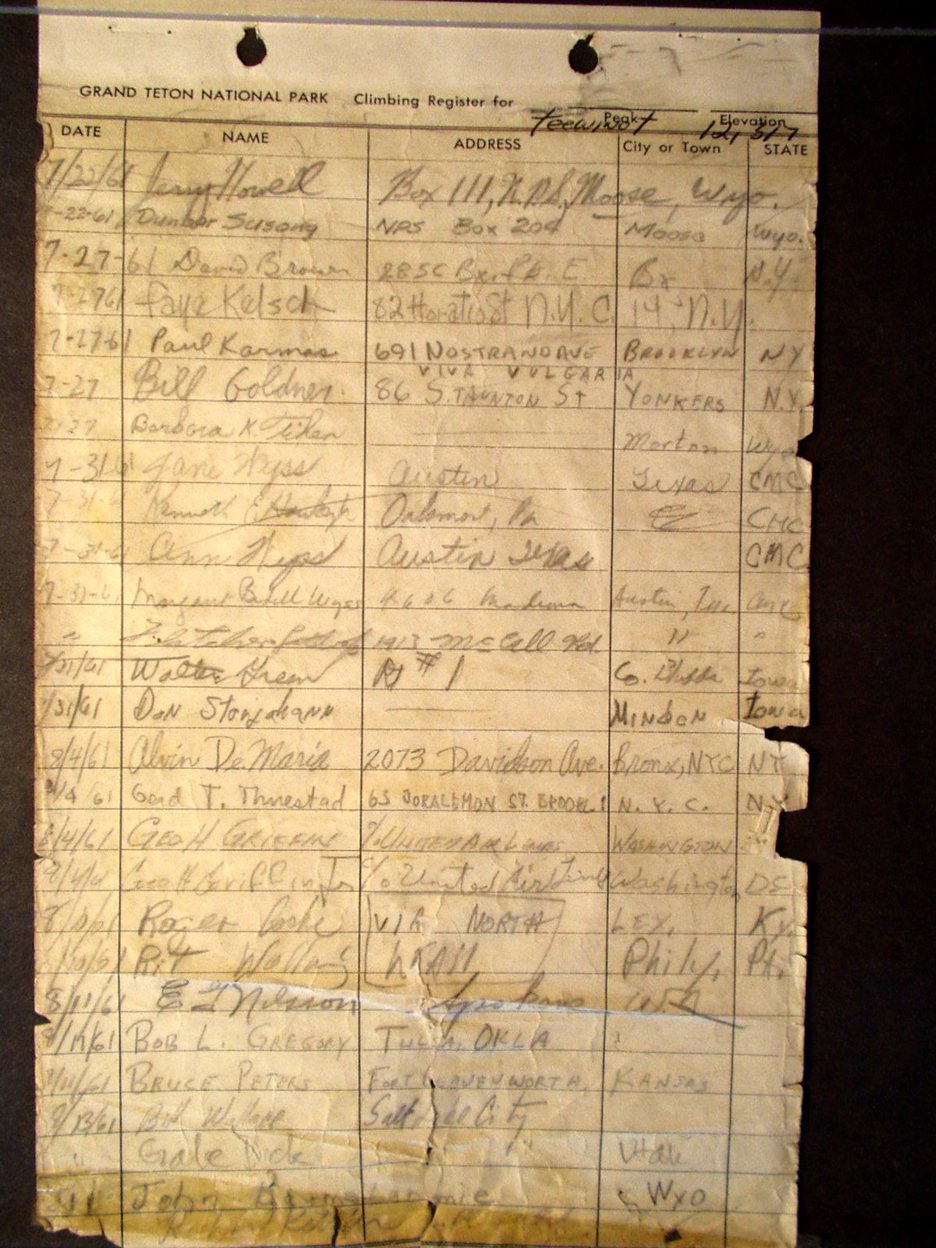 GRAND TETON NATIONAL PARK Climbing Register for Teewinot 12,317
Peak Elevation
DATE NAME ADDRESS City or Town STATE
7/22/61 Jerry Howell Box 111, N.P.S, Moose, Wyo.
7-22-61 Dunbar Susong NPS Box 209 Moose Wyo.
7-27-61 David Brown Bx N.Y.
7-27 61 Faye Kelsch 82 Horatio St N.Y.C. 14, N.Y.
7-27-61 Paul Karmas 691 NOSTRAND AVE BROOKLYN NY
VIVA VULGARIA
7-27 Bill Goldner 86 STAUNTON ST YONKERS N.Y.
7-27 Barbara K. Morton Wyo
7-31-61 Jane Wyss Austin Texas CMC
7-31-6 Kenneth E Pa CMC
7-31-6 Ann Wyss Austin Texas CMC
7-31-61 Margaret Wyss Austin, Tex CMC
" 1913 McCall Rd. " "
7/31/61 Walter Green # 1 Co. Bluffs Iowa
7/31/61 Don Storjohann MINDEN Iowa
8/4/61 Alvin De Maria 2073 Davidson Ave. Bronx, NYC NY
8/4 61 Gerd T. Thunestad 65 JORALEMON ST. BROOKL N.Y.C. NY
8/4/61 GEO H GRIFFIN % UNITED AIR LINES WASHINGTON
8/4/61 Geo H Griffin Jr c/o United Air Lines Washington, DC
8/ Roger Cooke VIA NORTH LEX, Ky.
Phily, Pa.
8/11/61 E Nilsson Spokane
8/11/61 BOB L. GREGORY TULSA, OKLA
8/11/61 BRUCE PETERS FORT LEAVENWORTH, KANSAS
8/13/61 Bill Wallace Salt Lake City
" Gale Dick Utah
John Wyo